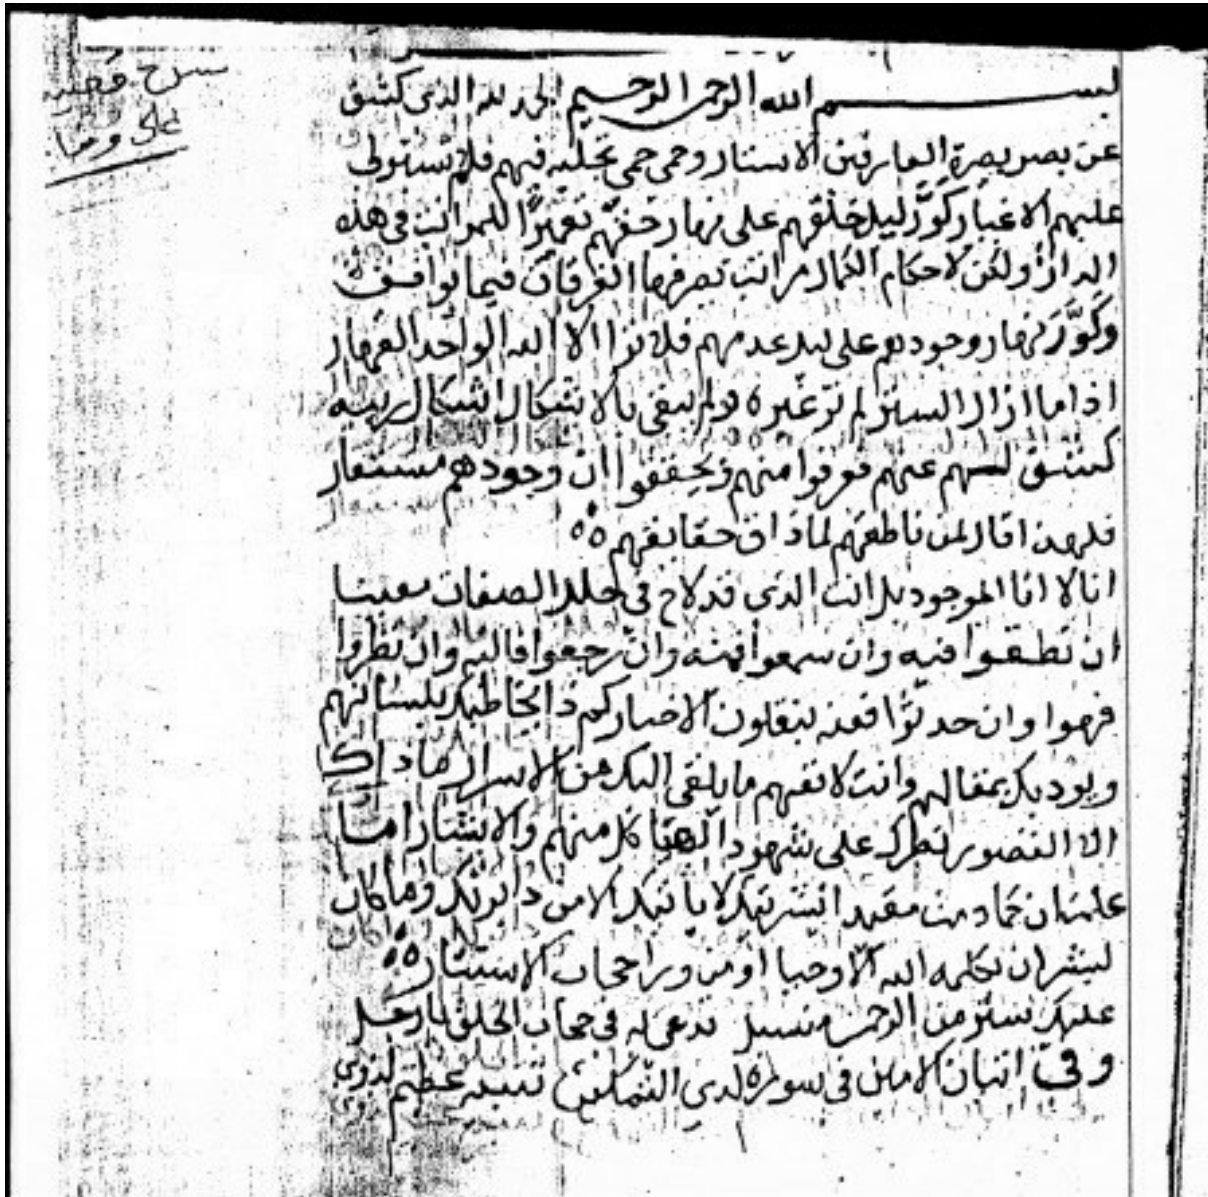 بسم الله الرحمن الرحيم الحمد لله الذي كشف
عن بصر بصيرة العارفين الاستار وحمى حمى تجليه فيهم فلم تستولى
عليهم الاغيار كور ليل خلقهم على نهار حقهم تعميرا للمراتب فى هذه
الدار ولكن لاحكام الكمال مراتب تعرفها الفرقان فيما توافق
وكور نهار وجودهم على ليل عدمهم فلا ترا الا الله الواحد القهار
اذا ما ازال الستر لم تر غيره ولم يبقى بالاشكال اشكال ريبه
كشف لهم عنهم ففروا منهم وتحققوا ان وجودهم مستعار
فلهذا قال لمن ناطقهم لما ذاق حقايقهم
انا لا انا الموجود بل انت الذى قد لاح فى حلل الصفات معينا
ان نطقوا فبه وان سمعوا فمنه وان رجعوا فاليه وان نظروا
فهموا وان حدثوا فعنه ينقلون الاخبار كم ذا يخاطبك بلسانهم
ويوديك بمقالهم وانت لا تفهم ما يلقى اليك من الاسرار ما ذاك
الا لقصور نظرك على شهود الهياكل منهم والابشار اما
علمت ان ما دمت مقيد ابشريتك لا ياتيك الا من دايرتك وما كان
لبشر ان يكلمه الله الا وحيا او من ورا حجاب الاستتار
عليك ستر من الرحمن منسبل تدعى له فى حجاب الخلق يا رجل
وفى اتيان الامين فى صورة لدى التمكين تنبيه عظيم لذوى